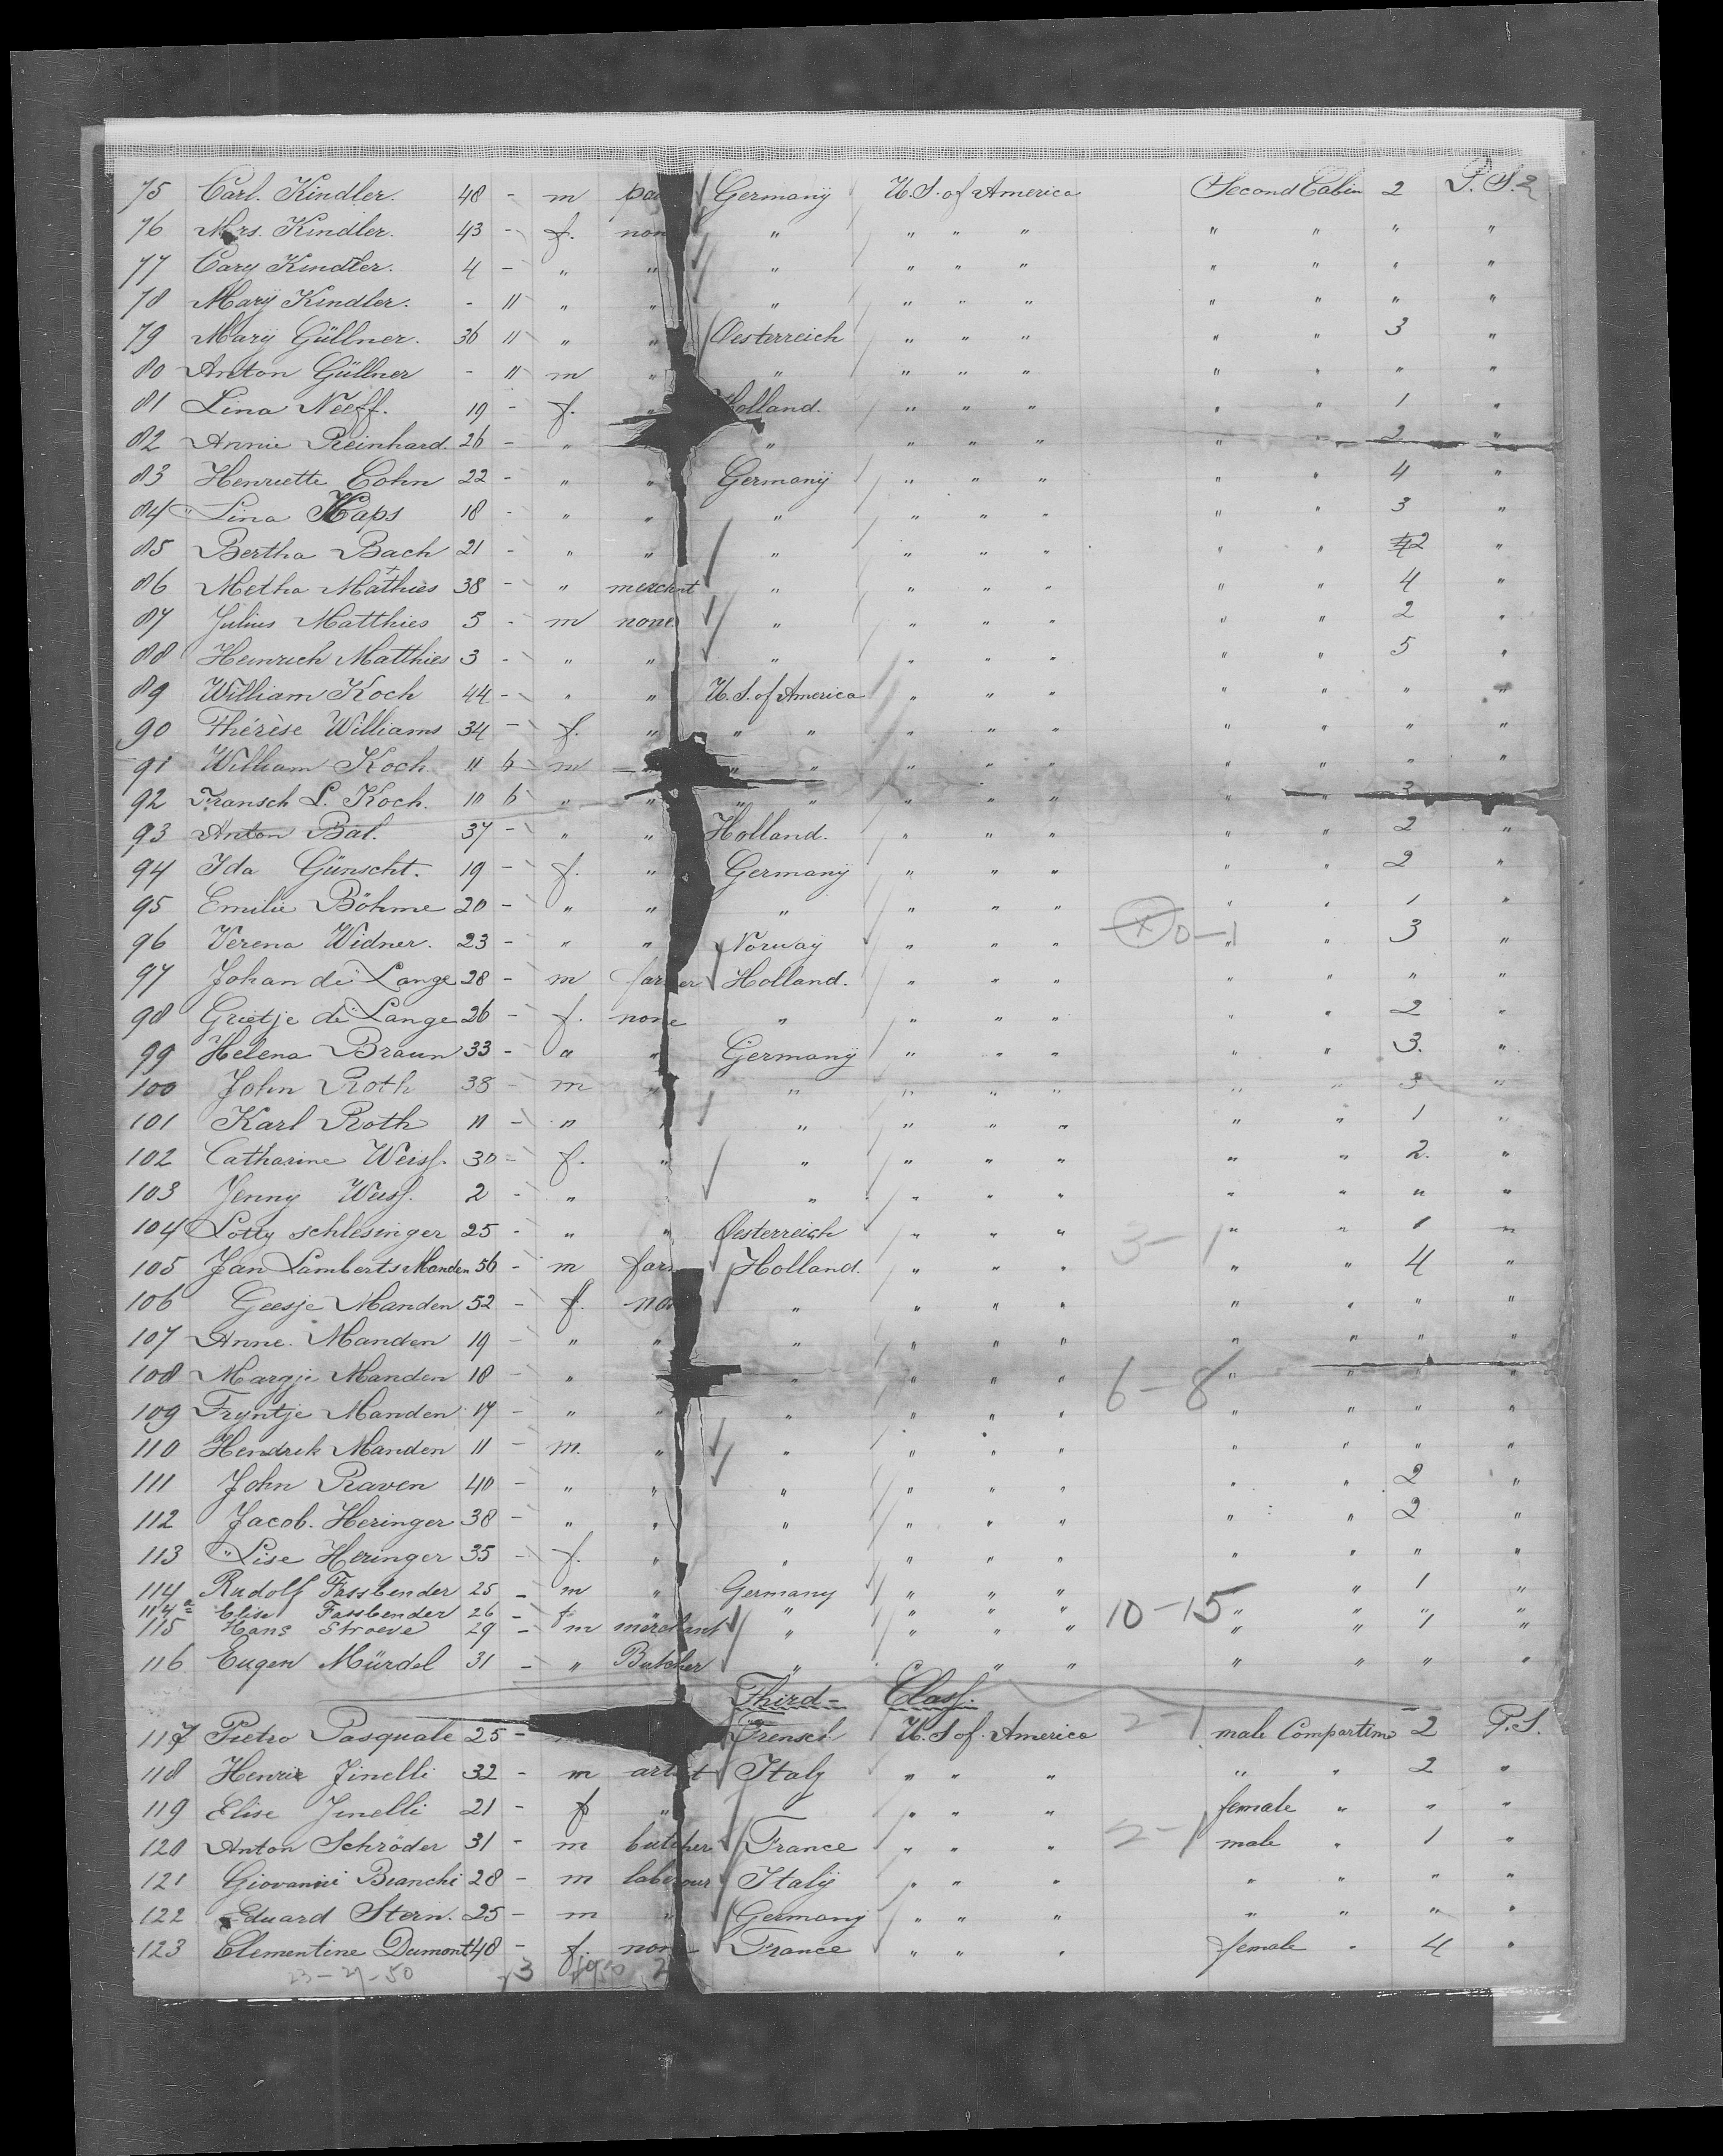 75 Carl. Kindler. 48 - m Germanÿ U.S. of America Second Cabin 2 P.S.
76 Mrs. Kindler. 43 - f. non " " " " " " " "
77 Cary Kindler. 4 - " " " " " " " " " "
78 Marÿ Kindler. - 11 " " " " " " " " " "
79 Marÿ Güllner. 36 11 " " Oesterreich " " " " " 3 "
80 Anton Güllner - 11 m " " " " " " " " "
81 Lina Neeff. 19 - f. " Holland. " " " " " 1 "
82 Annie Reinhard. 26 - " " " " " " " 2 "
83 Henriette Cohn 22 - " " Germanÿ " " " " " 4 "
84 Lina Haps 18 - " " " " " " " " 3 "
85 Bertha Bach 21 - " " " " " " " " 2 "
86 Metha Mathies 38 - " merchnt " " " " " " 4 "
87 Julius Matthies 5 - m none " " " " " " 2 "
88 Heinrich Matthies 3 - " " " " " " " " 5 "
89 William Koch 44 - " " U.S. of America " " " " " " "
90 Thérèse Williams 34 - f. " " " " " " " " " "
91 William Koch 11 6 m " " " " " " " " "
92 Fransch L. Koch. 10 6 " " " " " " " " " 3 "
93 Anton Bal. 37 - " " Holland. " " " " " 2 "
94 Ida Günscht. 19 - f. " Germanÿ " " " " " 2 "
95 Emilie Böhme 20 - " " " " " " " " 1 "
96 Verena Widner. 23 - " " Norwaÿ " " " 0-1 " " 3 "
97 Johan de Lange 28 - m far er Holland. " " " " " " "
98 Grietje de Lange 26 - f. none " " " " " " 2 "
99 Helena Braun 33 - " " Germanÿ " " " " " 3. "
100 John Roth 38 - m " " " " " " " 3 "
101 Karl Roth 11 - " " " " " " " 1 "
102 Catharine Weiss. 30 - f. " " " " " " " 2. "
103 Jenny Weiss. 2 - " " " " " " " " "
104 Lotty schlesinger 25 - " " Oesterreich " " " 3-1 " " 1 "
105 Jan Lamberts Manden 56 - m far Holland. " " " " " 4 "
106 Geesje Manden 52 - f. no " " " " " " " "
107 Anne. Manden 19 - " " " " " " " " " "
108 Margje Manden 18 - " " " " " 6-8 " " " "
109 Tryntje Manden 17 - " " " " " " " " " "
110 Hendrik Manden 11 - m. " " " " " " " " "
111 John Raven 40 - " " " " " " " " 2 "
112 Jacob. Heringer 38 - " " " " " " " " 2 "
113 Lise Heringer 35 - f. " " " " " " " " "
114 Rudolf Fassbender 25 - m " Germany " " " " 1 "
114a Elise Fassbender 26 - f. " " " " 10-15 " " " "
115 Hans Stroeve 29 - m merchant " " " " " " 1 "
116 Eugen Mürdel 31 - " Butcher " " " " " " " "
Third- Class.
117 Pietro Pasquale 25 - Frensch U.S of. America 2-1 male Compartim 2 P.S.
118 Henrie Jinelli 32 - m art t Italy " " " " " 2 "
119 Elise Jinelli 21 - f " " " " female " " "
120 Anton Schröder 31 - m butcher France " " " 2-1 male " 1 "
121 Giovanni Bianchi 28 - m labour Italÿ " " " " " " "
122 Eduard Stern. 25 - m " Germanÿ " " " " " " "
123 Clementine Dumont 48 - f. non France " " " female " 4 "